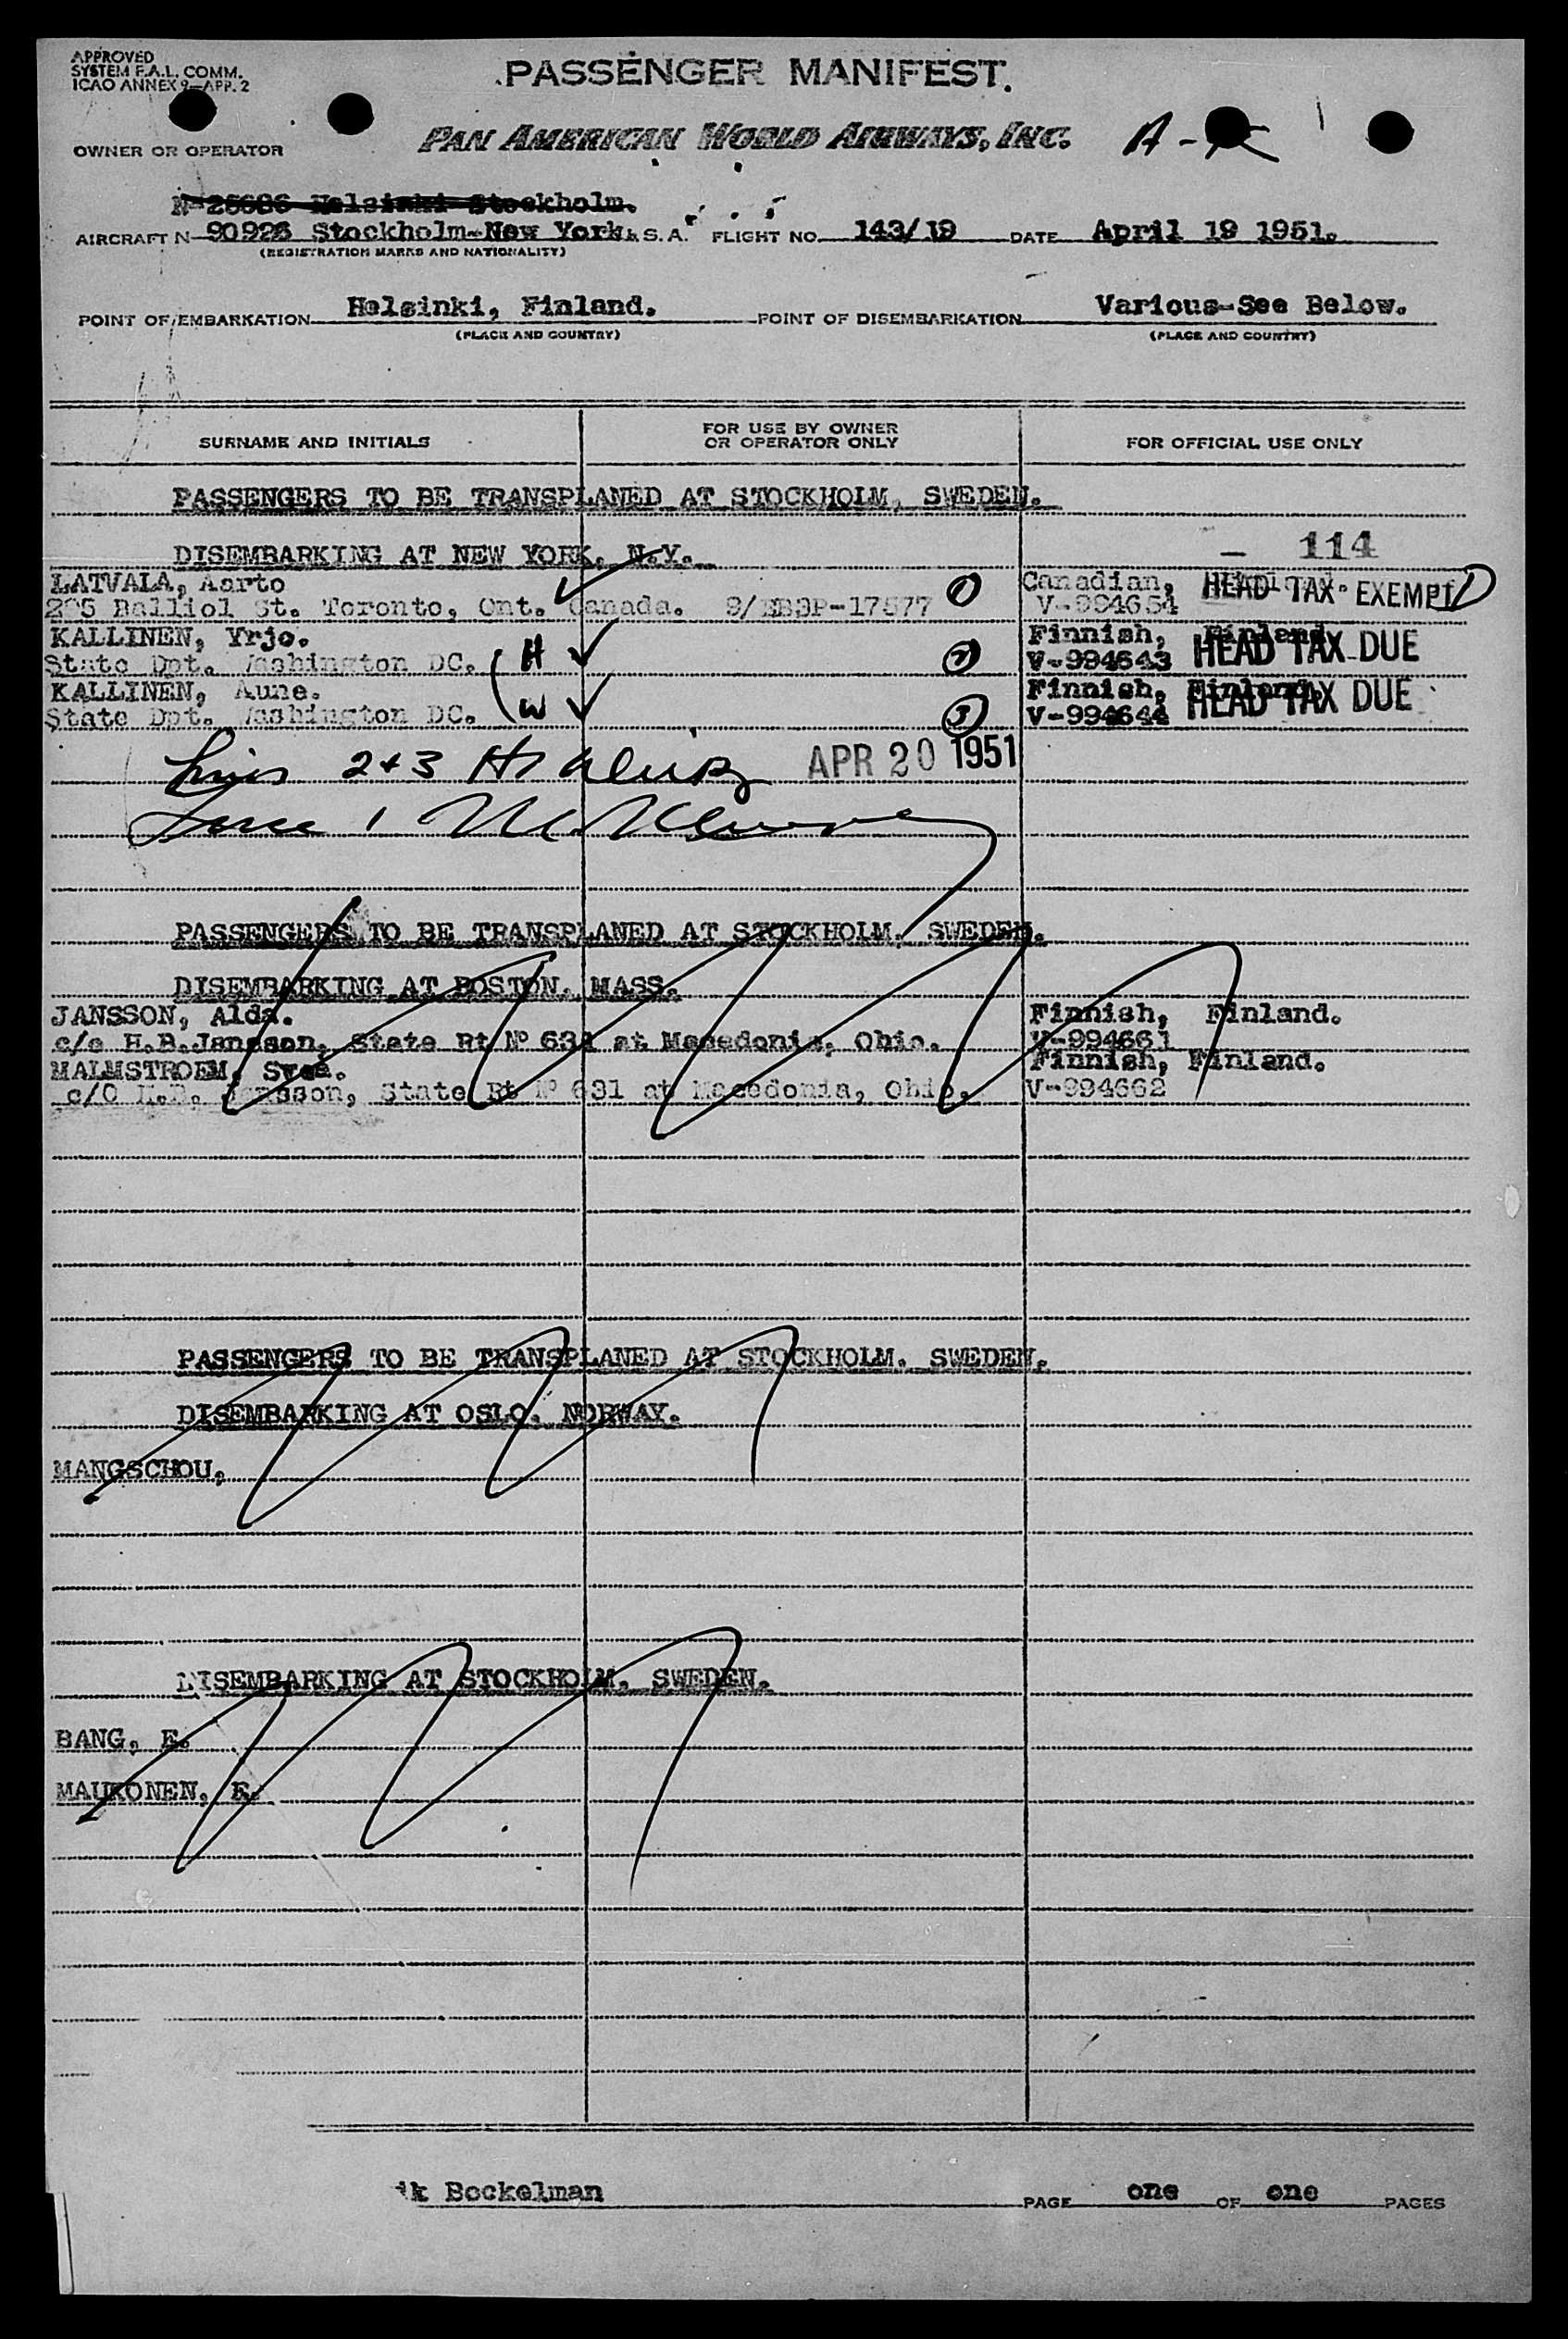 APPROVED
SYSTEM F.A.L. COMM.
ICAO ANNEX 9-APP. 2
PASSENGER MANIFEST.
OWNER OR OPERATOR
PAN AMERICAN WORLD AIRWAYS, INC.
A-
N-25686 Helsinki-Stockholm.
AIRCRAFT N-90926 Stockholm-New York. U.S.A. FLIGHT NO. 143/19 DATE April 19 1951.
(REGISTRATION MARKS AND NATIONALITY)
POINT OF EMBARKATION Helsinki, Finland. POINT OF DISEMBARKATION Various-See Below.
(PLACE AND COUNTRY) (PLACE AND COUNTRY)
SURNAME AND INITIALS FOR USE BY OWNER OR OPERATOR ONLY FOR OFFICIAL USE ONLY
PASSENGERS TO BE TRANSPLANED AT STOCKHOLM, SWEDEN.
DISEMBARKING AT NEW YORK, N.Y. - 114
LATVALA, Aarto 1 Canadian, HEAD TAX EXEMPT
Balliol St. Toronto, Ont. Canada. V-994654
KALLINEN, Yrjo. Finnish, Finland. HEAD TAX DUE
State Dpt. Washington DC. H 2 V-994643
KALLINEN, Aune. Finnish, Finland. HEAD TAX DUE
State Dpt. Washington DC. W 3 V-994644
Lines 2+3 APR 20 1951
Line 1
PASSENGERS TO BE TRANSPLANED AT STOCKHOLM, SWEDEN.
DISEMBARKING AT BOSTON, MASS.
JANSSON, Alda. Finnish, Finland.
c/o H.B.Jansson, State Rt Nº 631 at Macedonia, Ohio. V-994661
MALMSTROEM, Svea. Finnish, Finland.
c/o H.B. Jansson, State Rt Nº 631 at Macedonia, Ohio. V-994662
PASSENGERS TO BE TRANSPLANED AT STOCKHOLM. SWEDEN.
DISEMBARKING AT OSLO. NORWAY.
MANGSCHOU,
DISEMBARKING AT STOCKHOLM, SWEDEN.
BANG, E.
MAUKONEN, E.
ik Bockelman PAGE one OF one PAGES